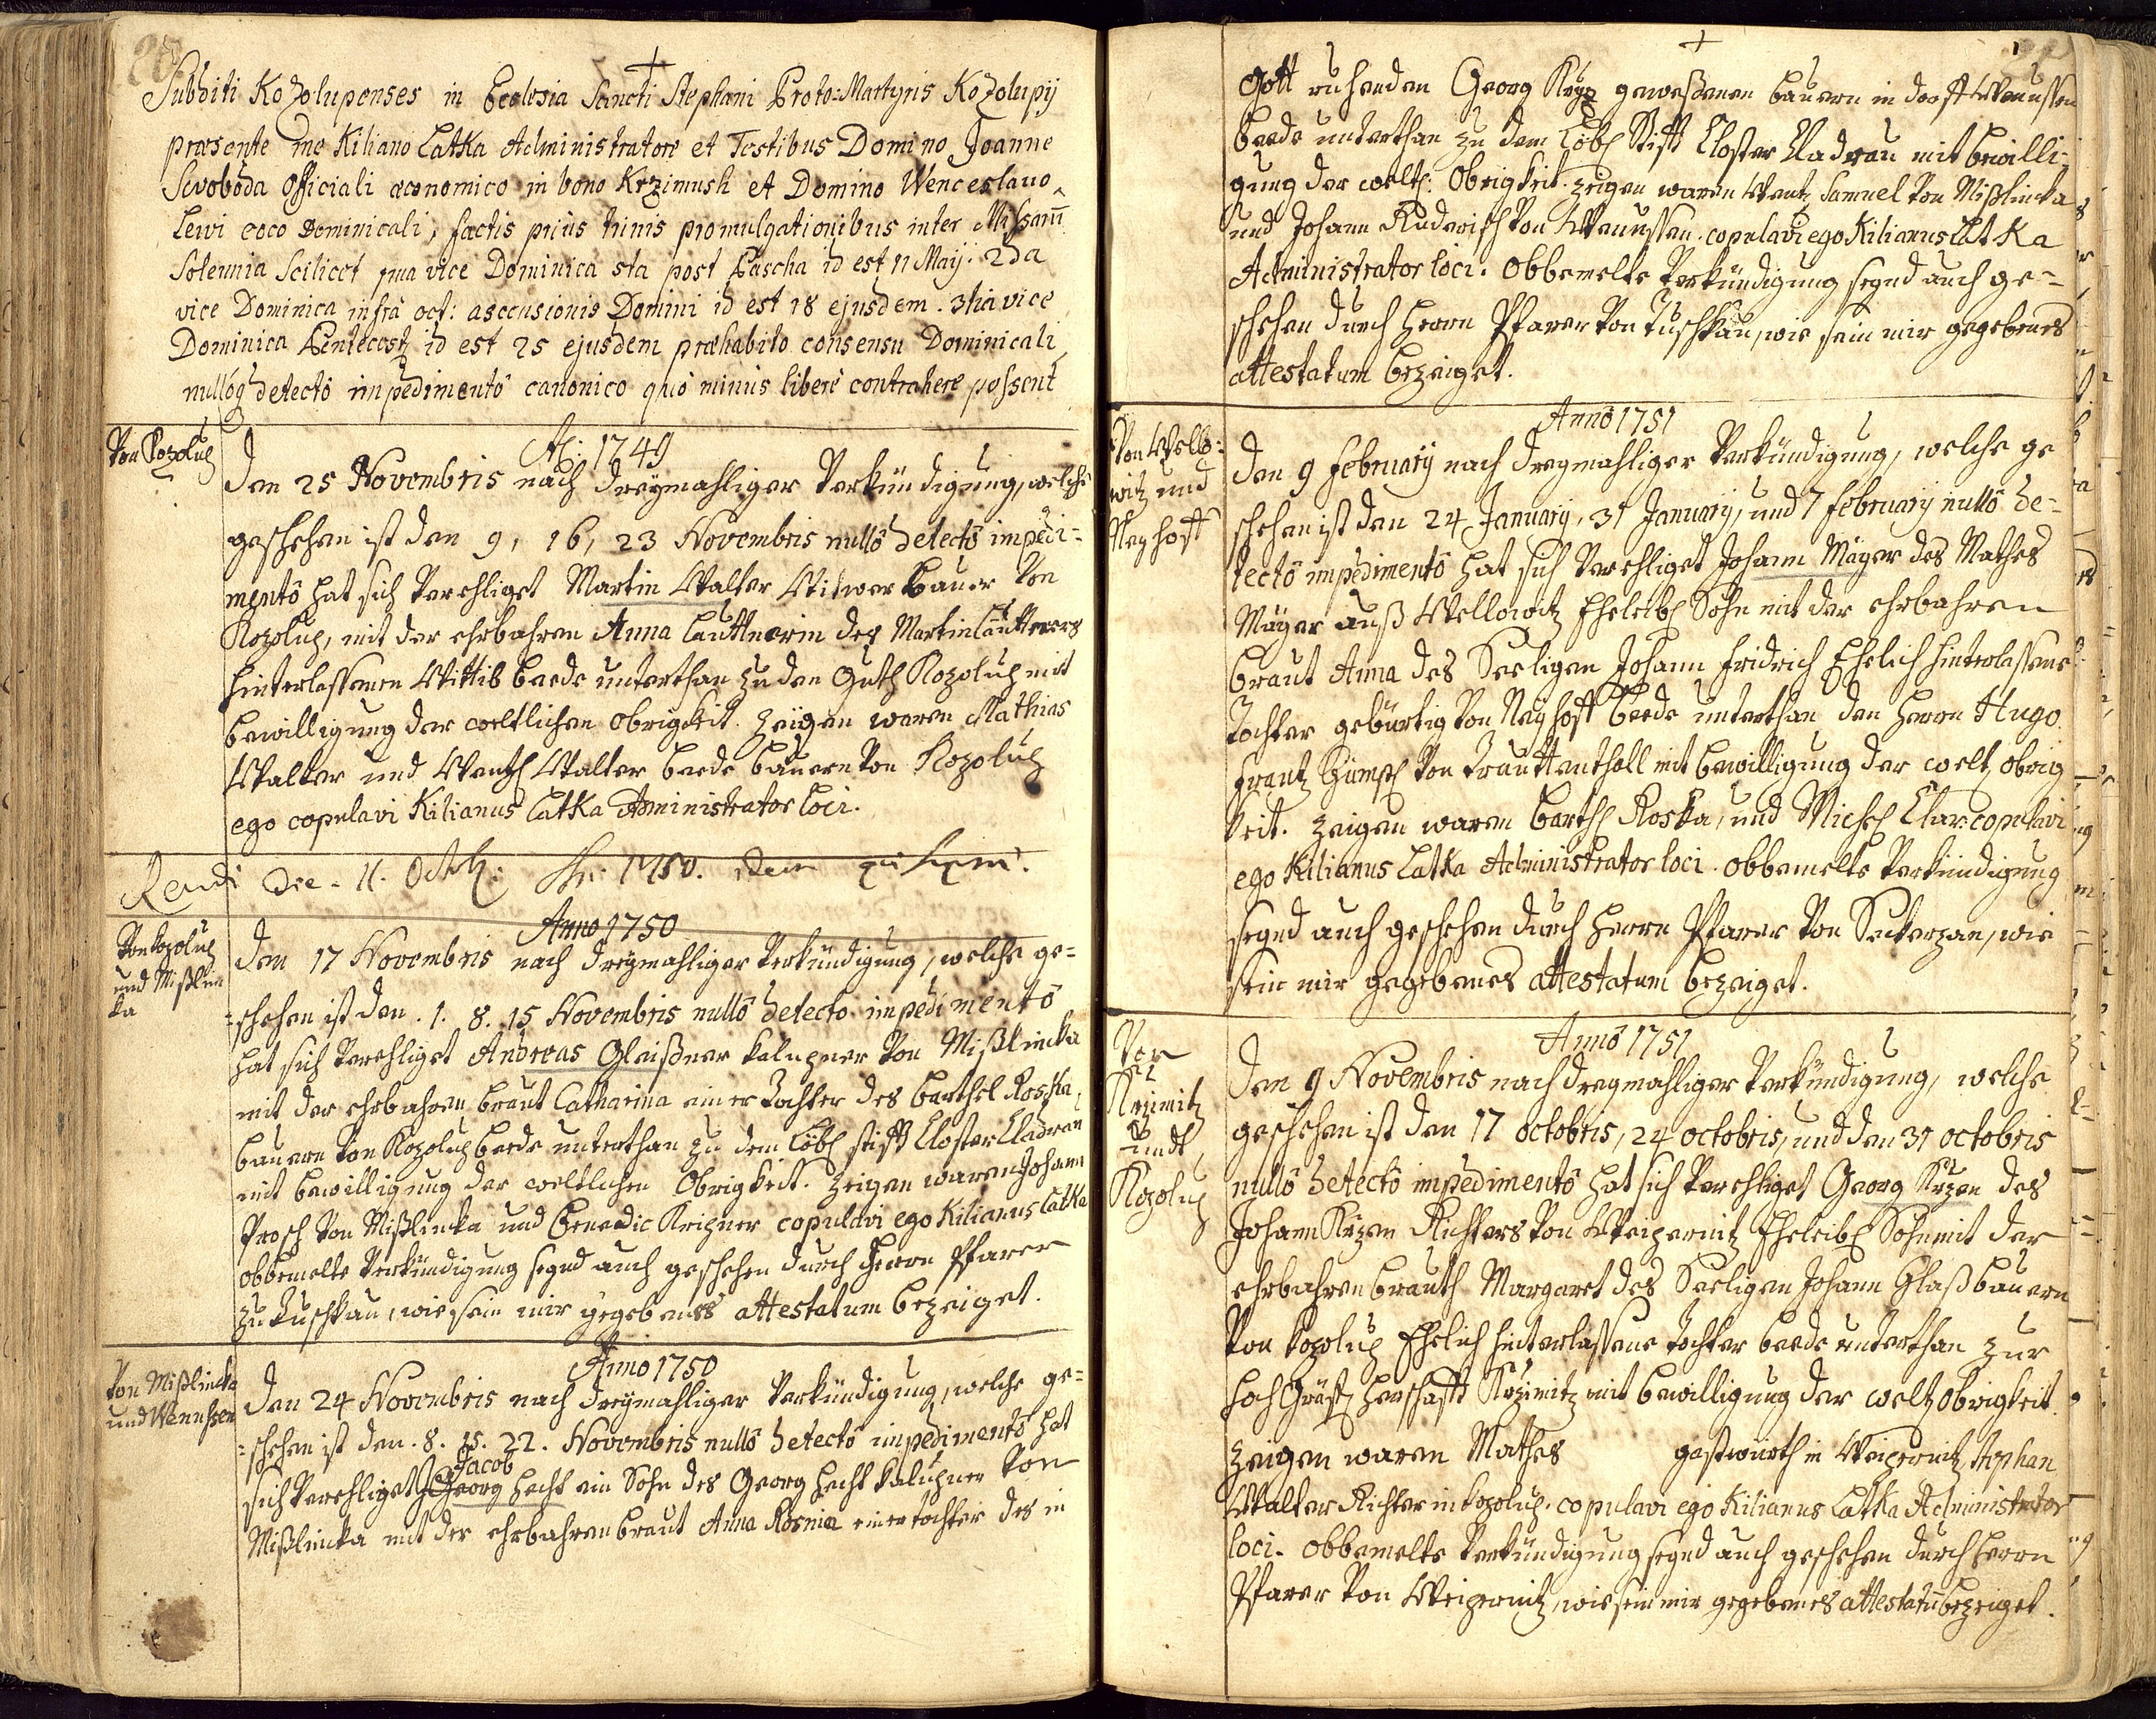 Subditi Kozolupenses in Ecclesia Sancti Stephani Proto-Martyris Kozolupij
præsente me Kiliano Latka Administratore et Testibus Domino Joanne
Swoboda Officiali œconomico in bono Krzimush et Domino Wenceslao
Lewi coco Dominicali, factis priùs trinis promulgationibus inter Missarū
Solennia Scilicet 1ma vice Dominica 5ta post Pascha id est 11 Maij. 2da
vice Dominica infra oct: ascensionis Domini id est 18 ejusdem. 3tia vice
Dominica Pentecost id est 25 ejusdem præhabito consensu Dominicali
nullóq detectô impedimentô canonico quô minùs liberè contrahere possent
Von Kozolup
A: 1749
Den 25 Novembris nach dreymahliger Verkündigung, welche
geschehen ist den 9, 16, 23 Novembris nullô detectô impedi-
mentô hat sich verehliget Martin Walter Witwer Bauer von
Kozolup, mit der ehrbahren Anna Lauttnerin des Martin Lauttners
hinterlassenen Wittib beede unterthan zu den Guth Kozolup mit
bewilligung der weltlichen obrigkeit. Zeügen waren Mathias
Walter und Wentzl Walter beede bauern von Kozolup
ego copulavi Kilianus Latka Administrator loci.
Die 11. Octob: 1750.
Von Kozolup
und Mißlin
ka
Anno 1750
Den 17 Novembris nach dreymahliger Verkündigung, welche ge-
schehen ist den .1. 8. 15 Novembris nullô detecto impedimentô
hat sich verehliget Andreas Gleißner kalupner von Mißlinka
mit der ehrbahren braut Catharina einer Tochter des Barthel Roska,
bauern von Kozolup beede unterthan zu dem Löbl stifft Closter Cladrau
mit bewilligung der weltlichen Obrigkeit. Zeigen waren Johann
Prosch von Mißlinka und Benedic Kreizner copulavi ego Kilianus Latka
obbemelte Verkündigung seynd auch geschehen durch Herrn Pfarer
zu Tuschkau, wie sein mir gegebenes attestatum bezeiget.
Von Mißlinka
und Wenussen
Anno 1750
Den 24 Novembris nach dreymahliger Verkündigung, welche ge-
schehen ist den .8. 15. 22. Novembris nullô detectô impedimentô hat
Jacob
sich verehliget Georg Hecht ein Sohn des Georg Hecht kalupner von
Mißlinka mit der ehrbahren braut Anna Rosnia einer tochter des in
Gott ruhenden Georg geweßenen bauern in dorff Wenussen
beede unterthan zu dem Löbl Stifft Closter Cladrau mit bewilli-
gung der weltl: Obrigkeit. Zeigen waren Wentz Samuel von Mißlinka
und Johann Ruderisch von Wenussen. copulavi ego Kilianus Latka
Administrator loci. Obbemelte Verkündigung seynd auch ge-
schehen durch Herrn Pfarer von Tuschkau, wie sein mir gegebenes
attestatum bezeiget.
Von Wello-
witz und
Neyhoff
Anno 1751
Den 9 February nach dreymahliger Verkündigung, welche ge
schehen ist den 24 January, 31 January, und 7 February nullô de-
tectô impedimentô hat sich verehliget Johann Mayer des Mathes
Mayer auß Wellowitz Eheleibl Sohn mit der ehrbahren
braut Anna des Seeligen Johann Fridrich Ehelich hinterlassene
Tochter gebürtig von Neyhoff beede unterthan den Herrn Hugo
Frantz von Trauttenthall mit bewilligung der welt, obrig
keit. Zeigen waren Barthl Roska, und Michl Clar: copulavi
ego Kilianus Latka Administrator loci. Obbemelte Verkündigung
seynd auch geschehen durch Herrn Pfarer von Sekerzan, wie
sein mir gegebenes attestatum bezeiget.
Von
Krzimitz
undt
Kozolup
Anno 1751
Den 9 Novembris nach dreymahliger Verkündigung, welche
geschehen ist den 17 octobris, 24 octobris, und den 31 octobris
nullô detectô impedimentô hat sich verehliget Georg Krzen des
Johann Krzen Richters von Weipernitz Eheleibl Sohn mit der
ehrbahren brauth Margaret des Seeligen Johann Glaß bauern
von Kozolup Ehelich hinterlassene tochter beede unterthan zur
hoch Gräfl Herschafft Krzimitz mit bewilligung der weltz Obrigkeit.
Zeigen waren Mathes gastwürth in Weipernitz, Stephan
Walter Richter in Kozolup. copulavi ego Kilianus Latka Administrator
loci. Obbemelte Verkündigung seynd auch geschehen durch Herrn
Pfarer von Weipernitz, wie sein mir gegebenes attestatū bezeiget.